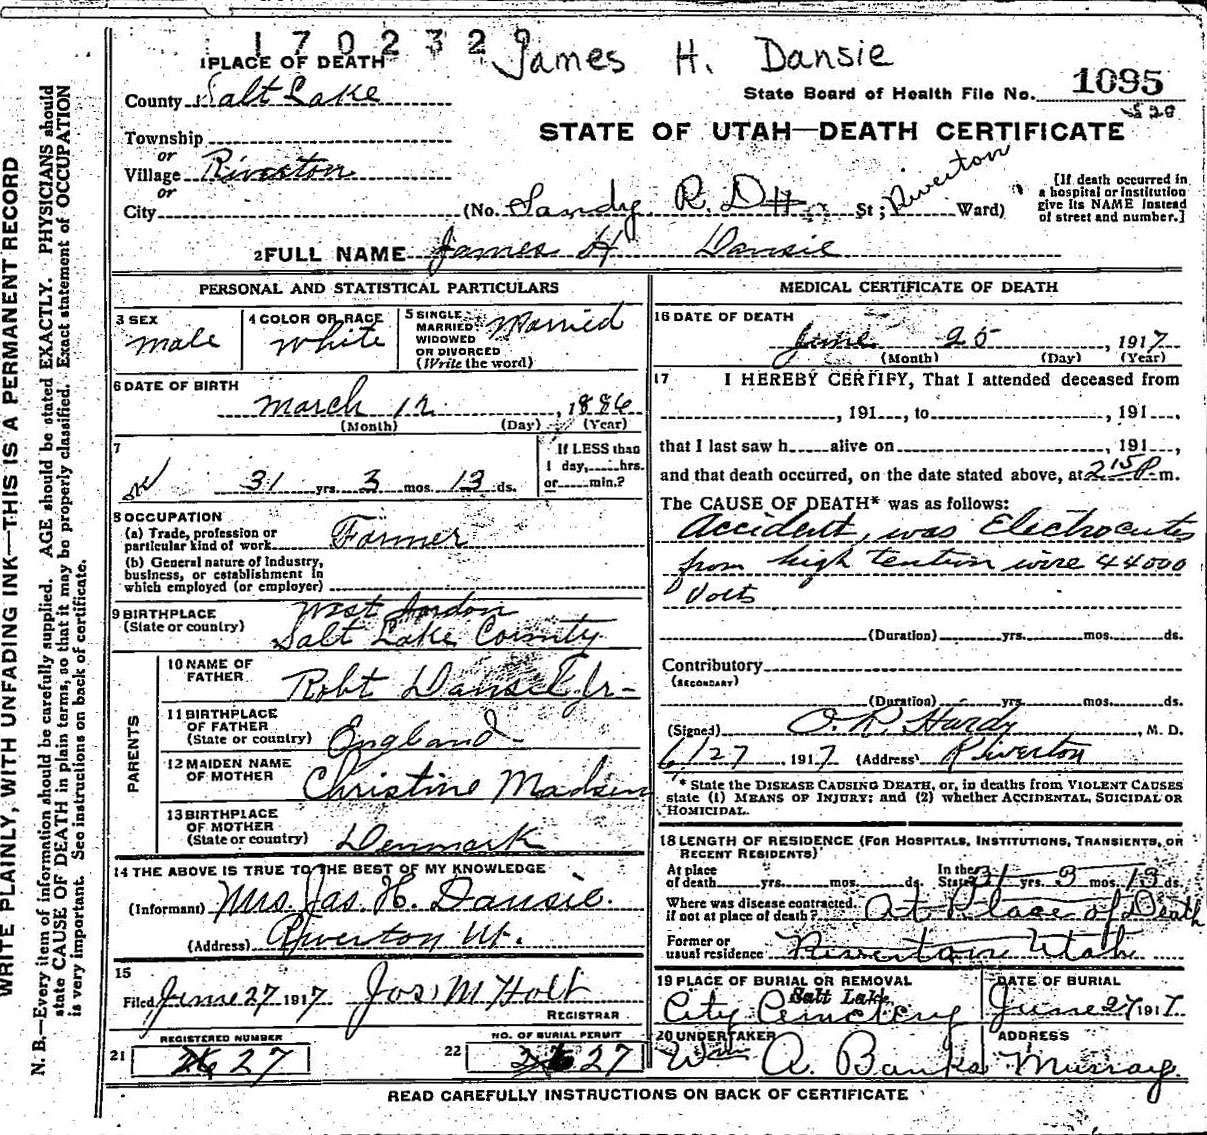 1702329
James H. Dansie
1 PLACE OF DEATH
County Salt Lake
State Board of Health File No. 1095
Township
or
Village Riverton
or
City
STATE OF UTAH—DEATH CERTIFICATE
(No. Sandy R.D. St; Riverton Ward)
[If death occurred in
a hospital or institution
give its NAME instead
of street and number.]
2 FULL NAME James H Dansie
PERSONAL AND STATISTICAL PARTICULARS
3 SEX
male
4 COLOR OR RACE
White
5 SINGLE
MARRIED
WIDOWED
OR DIVORCED
(Write the word)
Married
6 DATE OF BIRTH
March 12, 1886
(Month) (Day) (Year)
7
31 yrs. 3 mos. 13 ds.
If LESS than
1 day, hrs.
or min.?
8 OCCUPATION
(a) Trade, profession or
particular kind of work Farmer
(b) General nature of industry,
business, or establishment in
which employed (or employer)
9 BIRTHPLACE
(State or country)
West Jordon
Salt Lake County
PARENTS
10 NAME OF
FATHER
Robt Dansie Jr-
11 BIRTHPLACE
OF FATHER
(State or country)
England
12 MAIDEN NAME
OF MOTHER
Christine Madsen
13 BIRTHPLACE
OF MOTHER
(State or country)
Denmark
14 THE ABOVE IS TRUE TO THE BEST OF MY KNOWLEDGE
(Informant) Mrs. Jas. H. Dansie.
(Address) Riverton Ut.
15
Filed June 27 1917 Jos. M Holt
REGISTRAR
REGISTERED NUMBER
21 27
NO. OF BURIAL PERMIT
22 27
MEDICAL CERTIFICATE OF DEATH
16 DATE OF DEATH
June 25, 1917
(Month) (Day) (Year)
17 I HEREBY CERTIFY, That I attended deceased from
, 191 , to , 191 ,
that I last saw h alive on , 191 ,
and that death occurred, on the date stated above, at 2 15 P. m.
The CAUSE OF DEATH* was as follows:
Accident, was Electrocuted
from high tention wire 44000
Volts
(Duration) yrs. mos. ds.
Contributory
(SECONDARY)
(Duration) yrs. mos. ds.
(Signed) O. R. Hardy, M. D.
6/27, 1917 (Address) Riverton
* State the DISEASE CAUSING DEATH, or, in deaths from VIOLENT CAUSES
state (1) MEANS OF INJURY; and (2) whether ACCIDENTAL, SUICIDAL OR
HOMICIDAL.
18 LENGTH OF RESIDENCE (FOR HOSPITALS, INSTITUTIONS, TRANSIENTS, OR
RECENT RESIDENTS)
At place
of death yrs. mos. ds.
In the
State 31 yrs. 3 mos. 13 ds.
Where was disease contracted,
if not at place of death? At Place of Death
Former or
usual residence Riverton Utah
19 PLACE OF BURIAL OR REMOVAL
Salt Lake
City Cemetery
DATE OF BURIAL
June 27 1917
20 UNDERTAKER
Wm A. Banks
ADDRESS
Murray.
READ CAREFULLY INSTRUCTIONS ON BACK OF CERTIFICATE
WRITE PLAINLY, WITH UNFADING INK—THIS IS A PERMANENT RECORD
N. B.—Every item of information should be carefully supplied. AGE should be stated EXACTLY. PHYSICIANS should
state CAUSE OF DEATH in plain terms, so that it may be properly classified. Exact statement of OCCUPATION
is very important. See instructions on back of certificate.